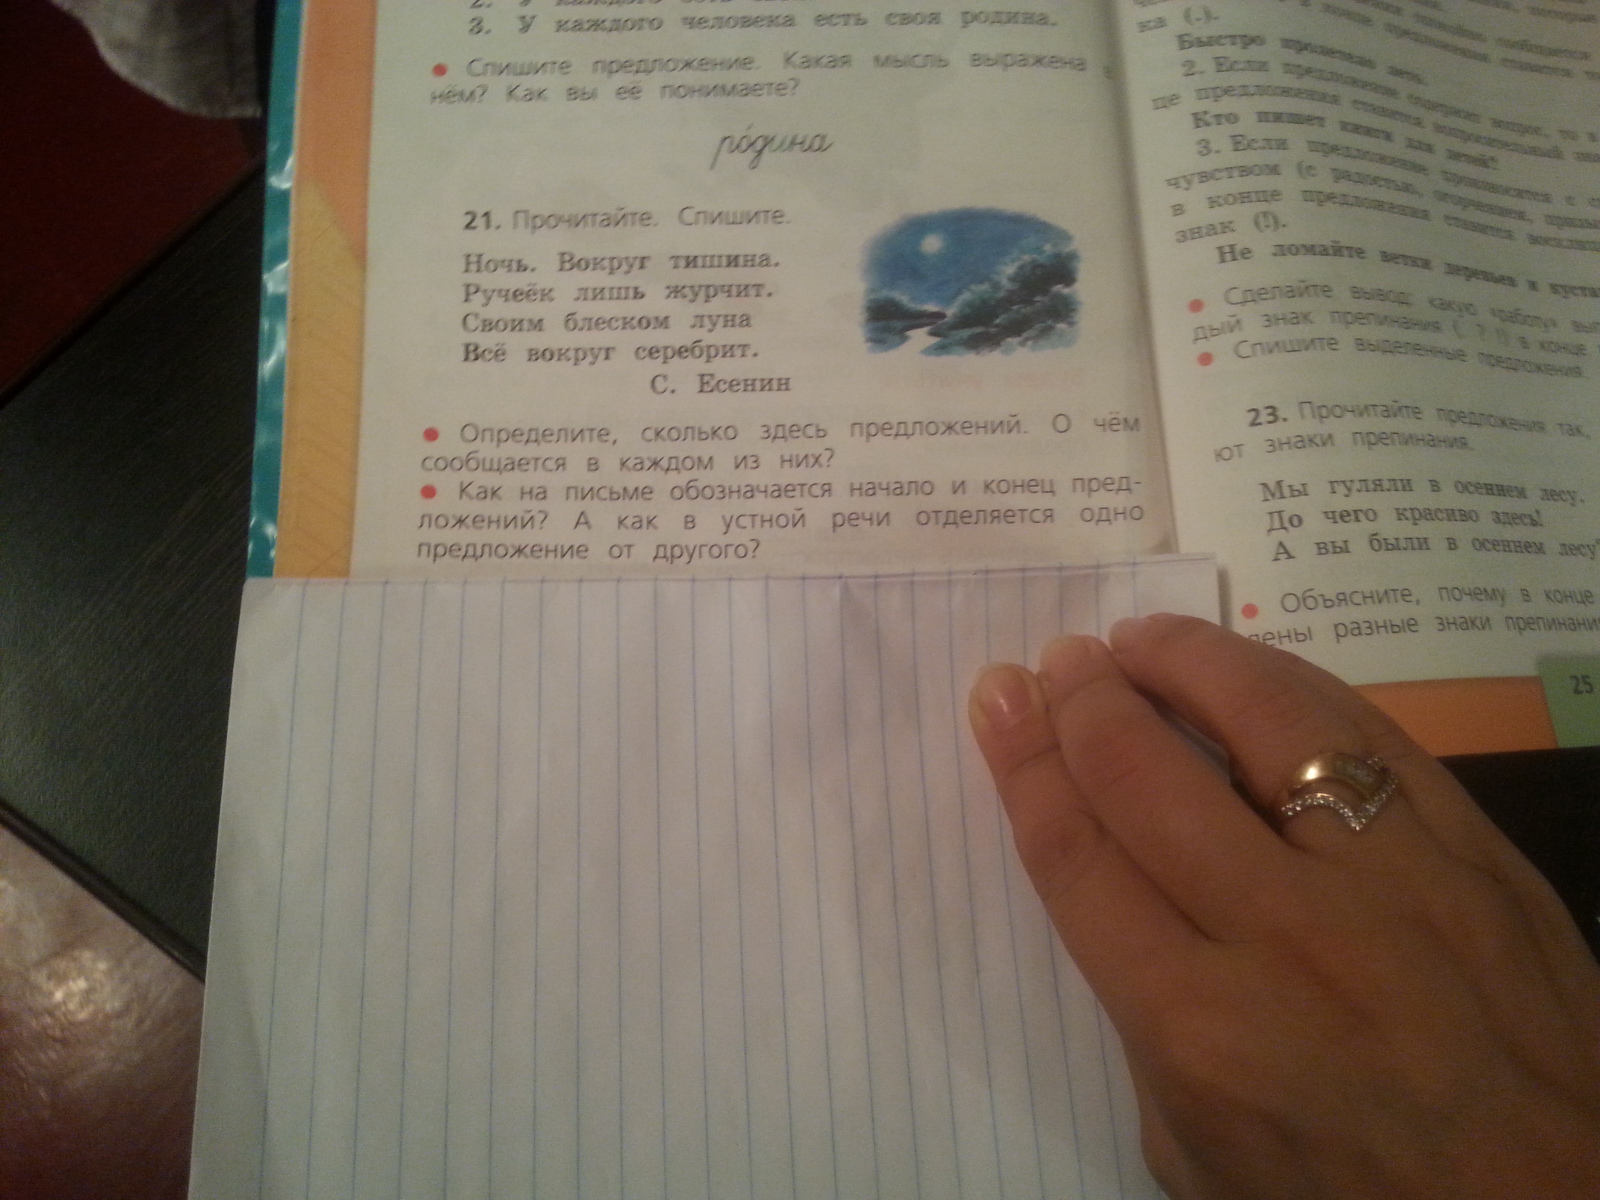 3. У каждого человека есть своя родина.
● Спишите предложение. Какая мысль выражена в
нём? Как вы её понимаете?
ро́дина
21. Прочитайте. Спишите.
Ночь. Вокруг тишина.
Ручеёк лишь журчит.
Своим блеском луна
Всё вокруг серебрит.
С. Есенин
● Определите, сколько здесь предложений. О чём
сообщается в каждом из них?
● Как на письме обозначается начало и конец пред-
ложений? А как в устной речи отделяется одно
предложение от другого?
ка (.).
Быстро пролетело лето.
2. Если предложение содержит вопрос, то в
це предложения ставится вопросительный
Кто пишет книги для детей?
3. Если предложение произносится с
чувством (с радостью, огорчением,
в конце предложения ставится
знак (!).
Не ломайте ветки деревьев и
● Сделайте вывод: какую «работу»
дый знак препинания (. ? !) в конце
● Спишите выделенные предложения.
23. Прочитайте предложения так,
ют знаки препинания.
Мы гуляли в осеннем лесу.
До чего красиво здесь!
А вы были в осеннем лесу?
● Объясните, почему в конце
лены разные знаки препинания
25